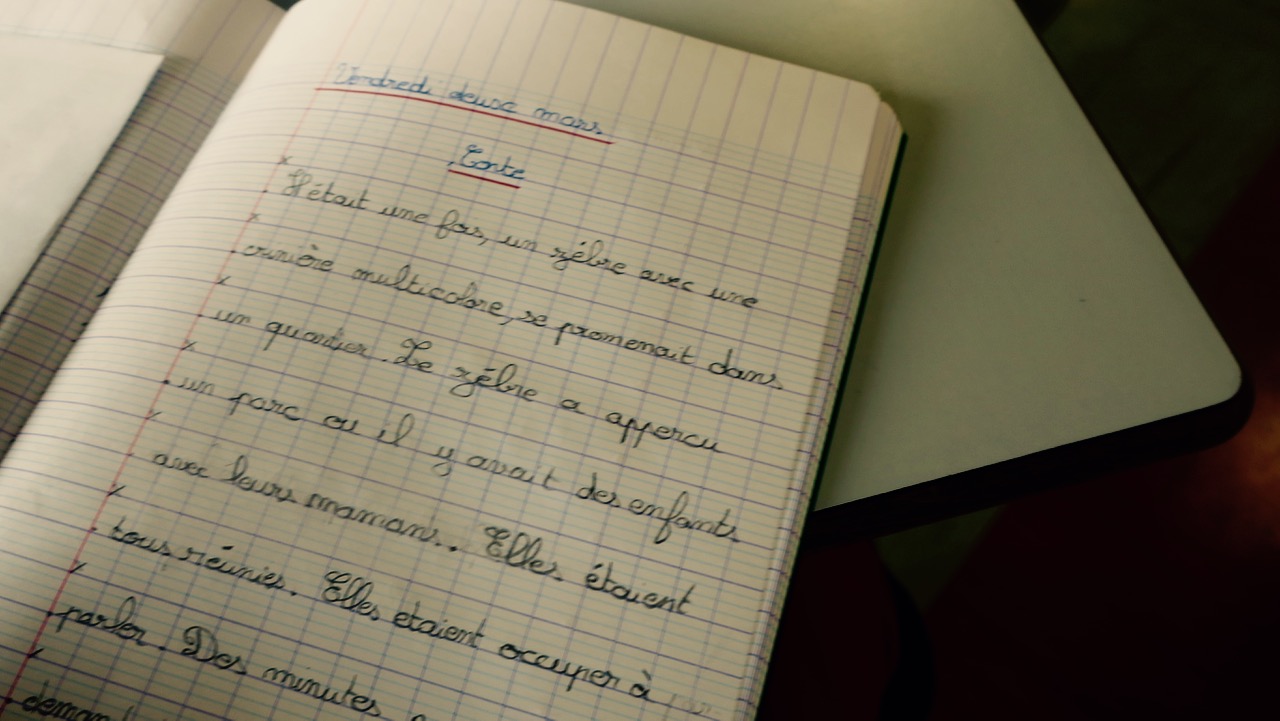 Vendredi douze mars
Conte
Il était une fois, un zébre avec une
crinière multicolore, se promenait dans
un quartier. Le zébre a appercu
un parc ou il y avait des enfants
avec leurs mamans. Elles étaient
tous réunies. Elles etaient occuper à
parler. Des minutes